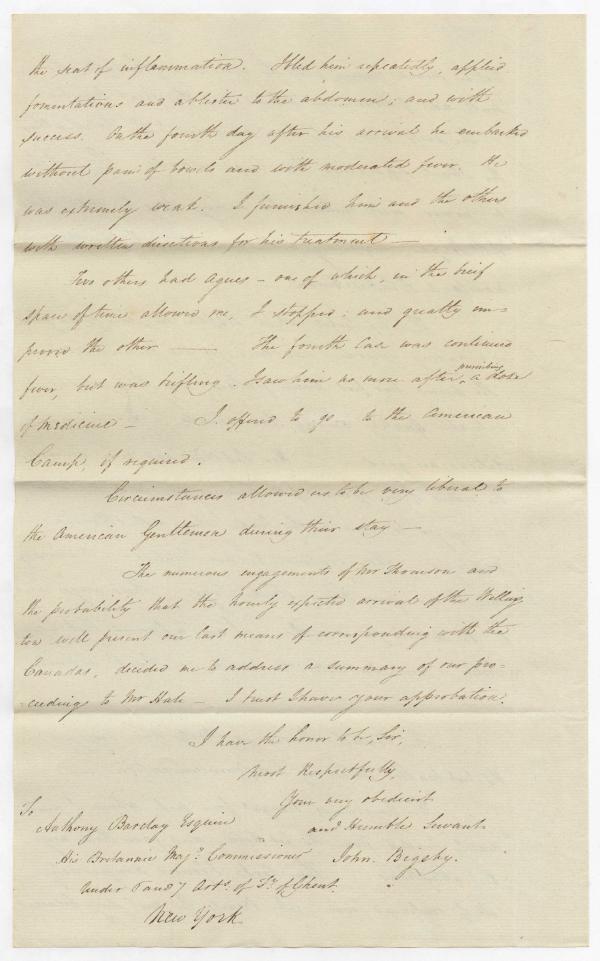 the seat of inflammation. I bled him repeatedly, applied
fomentations and a blister to the abdomen; and with
success. On the fourth day after his arrival he embarked
without pain of bowels and with moderated fever. He
was extremely weak. I furnished him and the others
with written directions for his treatment —
Two others had Agues – one of which, in the brief
space of time allowed me, I stopped; and greatly im-
proved the other —— The fourth Case was continued
fever, but was trifling. I saw him no more after a dose
of medicine – I offered to go to the American
Camp, if required.
Circumstances allowed us to be very liberal to
the American Gentlemen during their stay —
The numerous engagements of Mr Thomson and
the probability that the hourly expected arrival of the Welling
ton will present our last means of corresponding with the
Canadas, decided me to address a summary of our pro-
ceedings to Mr Hale – I trust I have your approbation.
I have the honor to be, Sir,
Most Respectfully,
Your very obedient
and Humble Servant
John. Bigsby.
To
Anthony Barclay Esquire
His Britannic Maj.s Commissioner
Under 6 and 7 Arts. of Ty. of Ghent.
New York